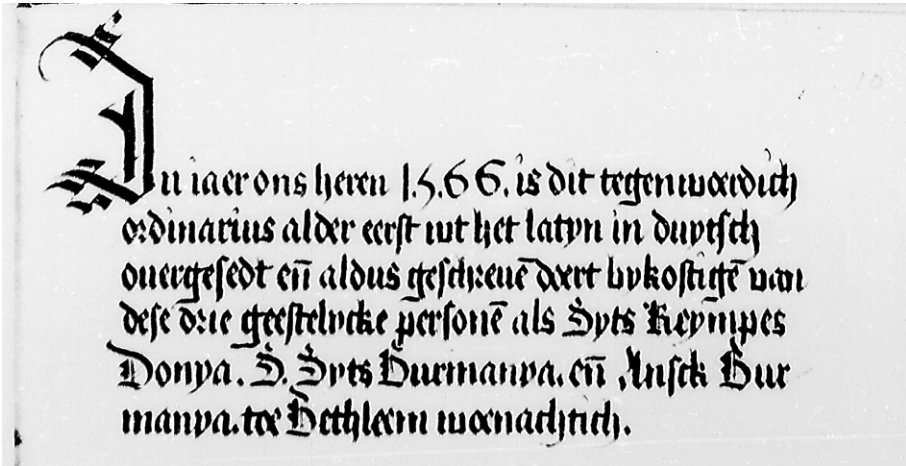 In iaer ons heren 1.5.6 6. is dit tegenwoerdich
ordinarius alder eerst wt het latyn in duytsch
ouergesedt en̄ aldus geschreuē doert bykostigē van
dese drie geestelycke personē als Syts Reympes
Donya. S. Syts Burmanya. en̄ Ansck Bur
manya. toe Bethleem woenachtich.